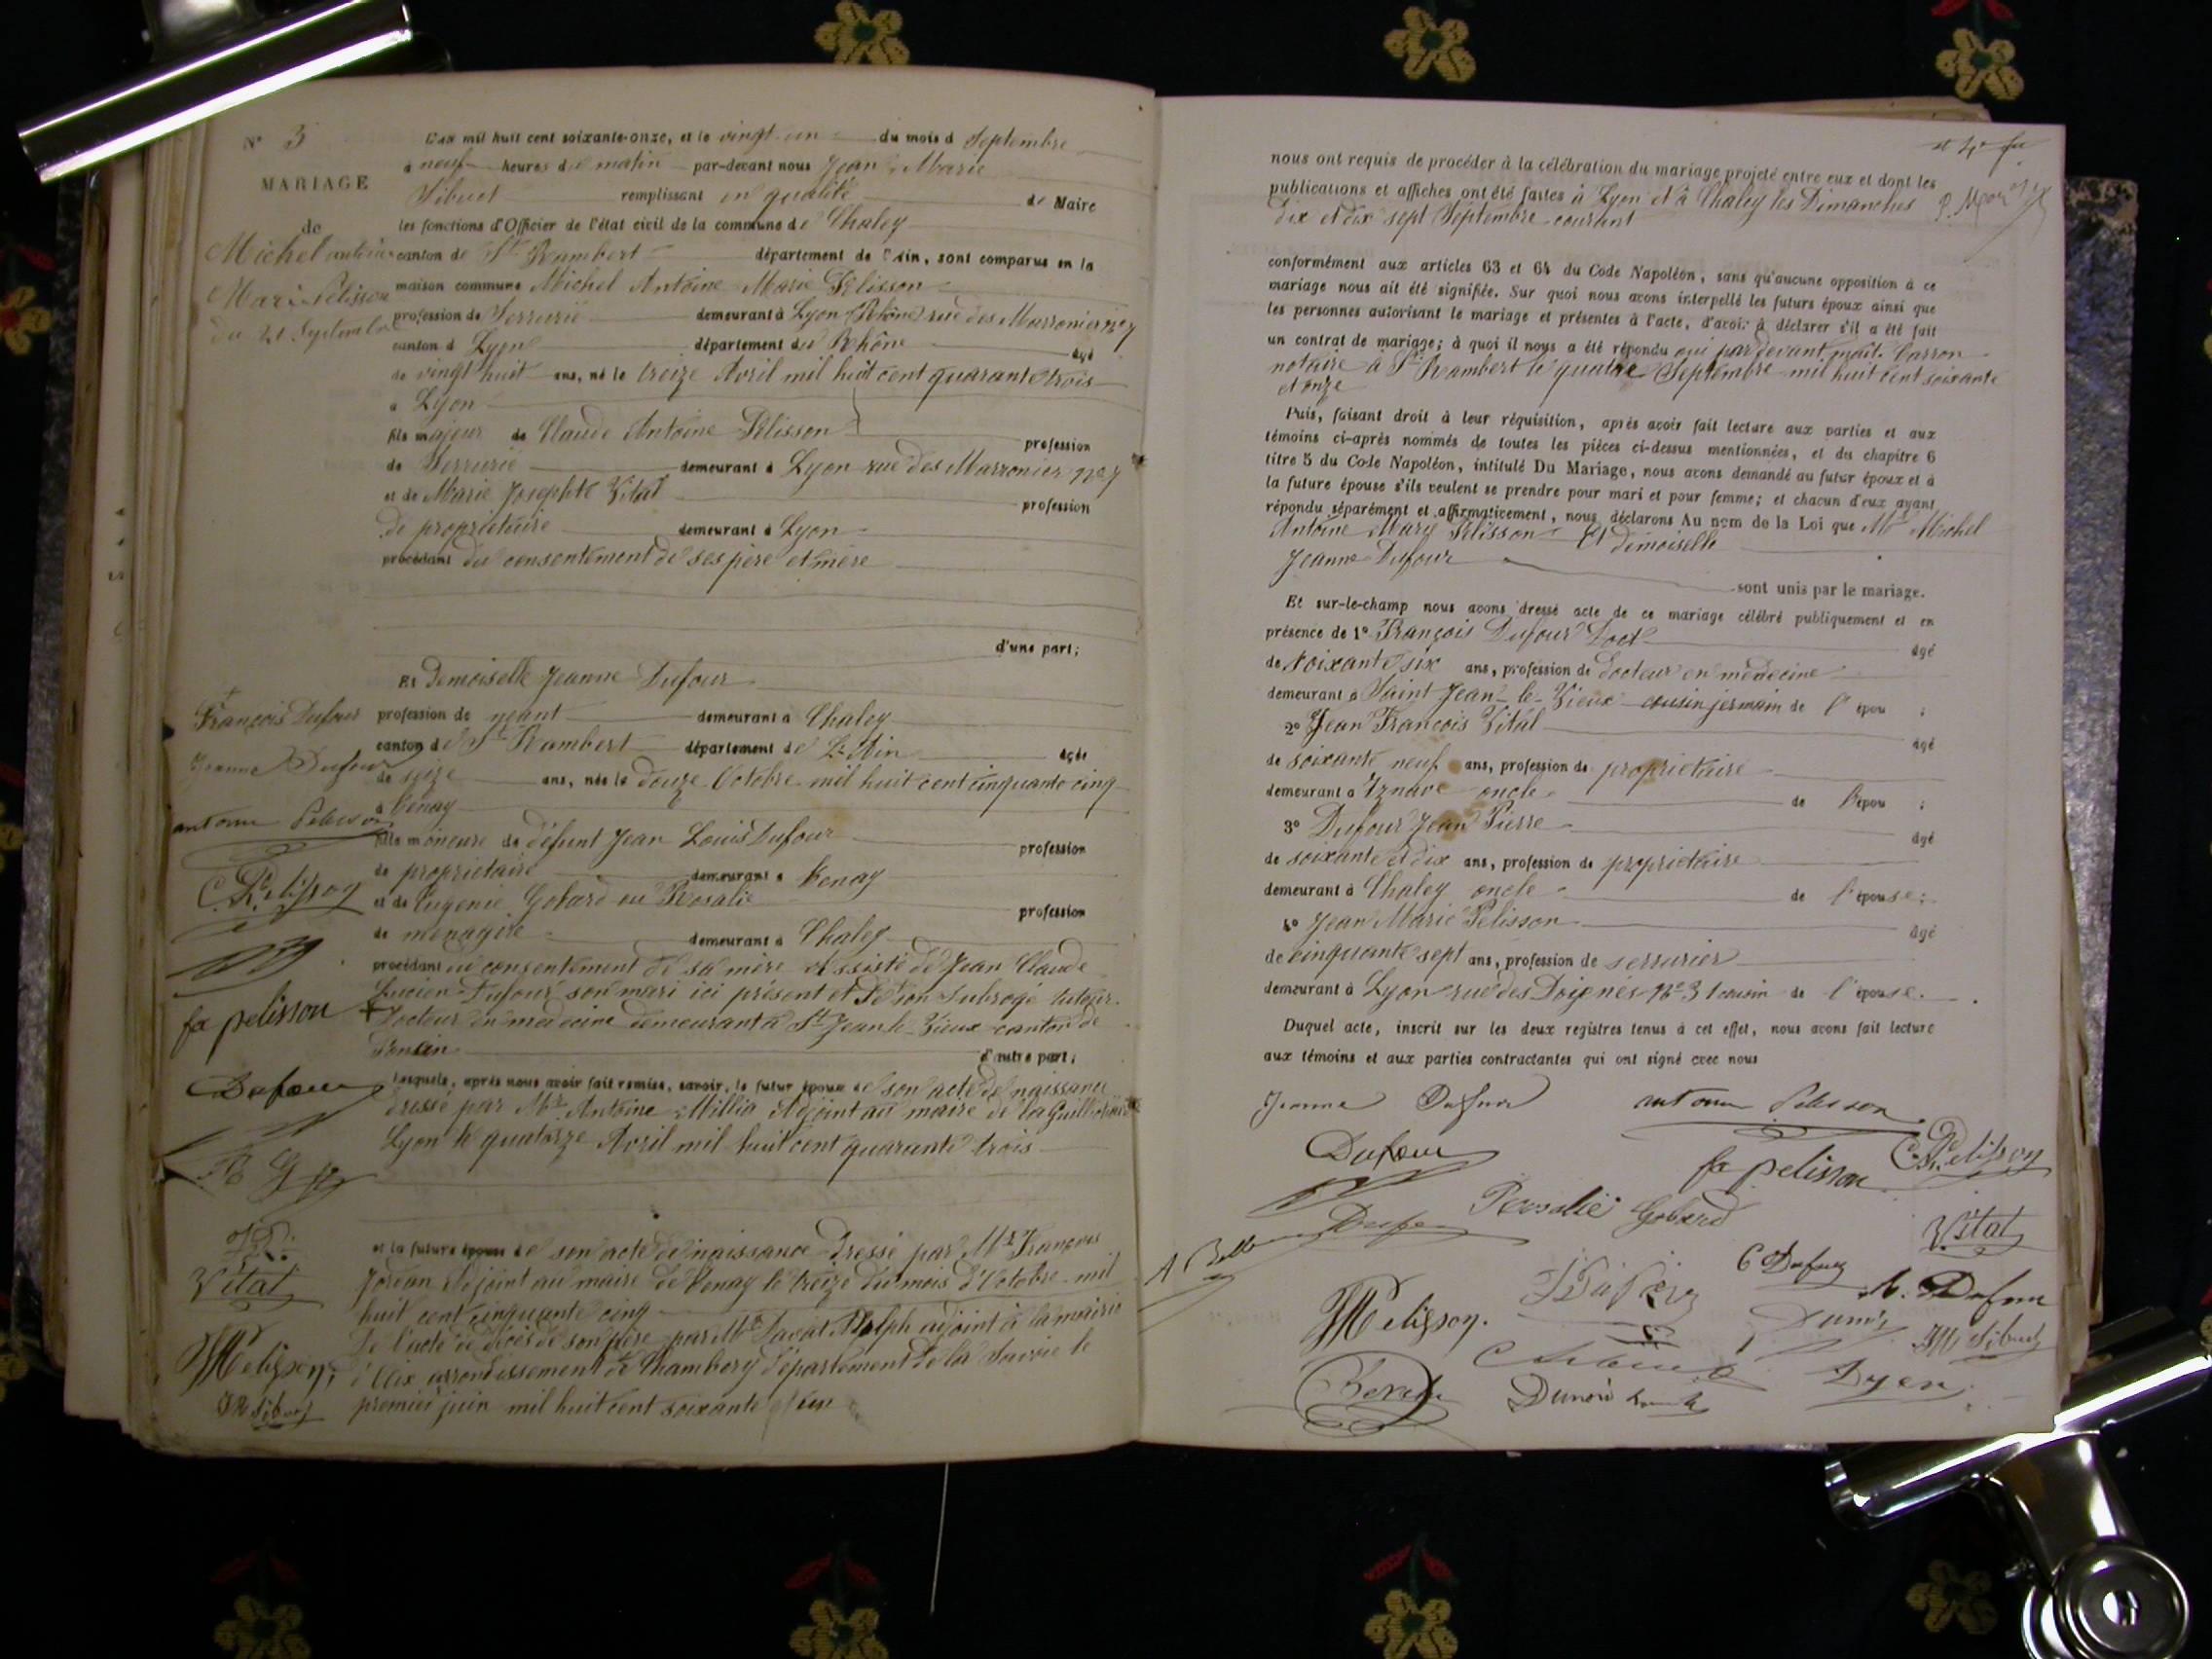 N° 3
MARIAGE
de
Michel antoine
Mari Pelisson
du 21 Septembre
L'an mil huit cent soixante-onze, et le vingt un du mois d Septembre
à neuf heures du matin par-devant nous Jean Marie
Sibuet remplissant en qualité de Maire
les fonctions d'Officier de l'état civil de la commune de Chaley
canton de St Rambert département de l'Ain, sont comparus en la
maison commune Michel Antoine Marie Pélisson
profession de Serrurié demeurant à Lyon (Rhône) rue des Marronier n° 7
canton d Lyon département du Rhône âgé
de vingt huit ans, né le treize Avril mil huit cent quarante trois
à Lyon
fils majeur de Claude Antoine Pélisson profession
de Serrurié demeurant à Lyon rue des Marronier n° 7
et de Marie Josephte Vital profession
de propriétaire demeurant à Lyon
procédant du consentement de ses père et mère
d'une part;
Et Demoiselle Jeanne Dufour
profession de néant demeurant à Chaley
canton de St Rambert département de L'Ain âgée
de seize ans, née le douze Octobre mil huit cent cinquante cinq
à Tenay
fille mineure de défunt Jean Louis Dufour profession
de propriétaire demeurant à Tenay
et de Eugenie Gobard ou Rosalie profession
de menagère demeurant à Chaley
procédant du consentement de sa mère Assisté de Jean Claude
Lucien Dufour son mari ici présent et de son Subrogé tuteur
+ Docteur en medecine demeurant à St Jean le Vieux canton de
Poncin d'autre part;
Lesquels, après nous avoir fait remise, savoir, le futur époux de son acte de naissance
dressé par Mr Antoine Millia Adjoint au maire de la Guillotière
Lyon le quatorze Avril mil huit cent quarante trois
et la future épouse de son acte de naissance dressé par Mr François
Jordan Adjoint au maire de Tenay le treize du mois d'Octobre mil
huit cent cinquante cinq
De l'acte de décès de son père par Mr Adolph adjoint à la mairie
d'Aix arrondissement de Chambery département de la Savoie le
premier juin mil huit cent soixante
+
François Dufour
Jeanne Dufour
antoine Pelisson
C. Pelisson
fa pelisson
Dufour
Vital
JM Pelisson
JM Sibuet
nous ont requis de procéder à la célébration du mariage projeté entre eux et dont les
publications et affiches ont été faites à Lyon et à Chaley les Dimanches
dix et dix sept Septembre courant
conformément aux articles 63 et 64 du Code Napoléon, sans qu'aucune opposition à ce
mariage nous ait été signifiée. Sur quoi nous avons interpellé les futurs époux ainsi que
les personnes autorisant le mariage et présentes à l'acte, d'avoir à déclarer s'il a été fait
un contrat de mariage; à quoi il nous a été répondu oui par devant mait. Carron
notaire à St Rambert le quatre Septembre mil huit cent soixante
et onze
Puis, faisant droit à leur réquisition, après avoir fait lecture aux parties et aux
témoins ci-après nommés de toutes les pièces ci-dessus mentionnées, et du chapitre 6
titre 5 du Code Napoléon, intitulé Du Mariage, nous avons demandé au futur époux et à
la future épouse s'ils veulent se prendre pour mari et pour femme; et chacun d'eux ayant
répondu séparément et affirmativement, nous déclarons Au nom de la Loi que Mr Michel
Antoine Marie Pélisson Et Demoiselle
Jeanne Dufour
sont unis par le mariage.
Et sur-le-champ nous avons dressé acte de ce mariage célébré publiquement et en
présence de 1° François Dufour Doct âgé
de soixante six ans, profession de docteur en médecine
demeurant à Saint Jean-le-Vieux cousin jermain de l'épou ;
2° Jean François Vital âgé
de soixante neuf ans, profession de propriétaire
demeurant à Iznave oncle de l'épou ;
3° Dufour Jean Pierre âgé
de soixante et dix ans, profession de propriétaire
demeurant à Chaley oncle de l'épouse;
4° Jean Marie Pélisson âgé
de cinquante sept ans, profession de serrurier
demeurant à Lyon rue des n° 31 cousin de l'épouse.
Duquel acte, inscrit sur les deux registres tenus à cet effet, nous avons fait lecture
aux témoins et aux parties contractantes qui ont signé avec nous
Jeanne Dufour antoine Pelisson
Dufour fa pelisson C. Pelisson
Rosalie Gobard Vital
C Dufour
JM Pelisson. Dufour
JM Sibuet
Dunoir Dyen